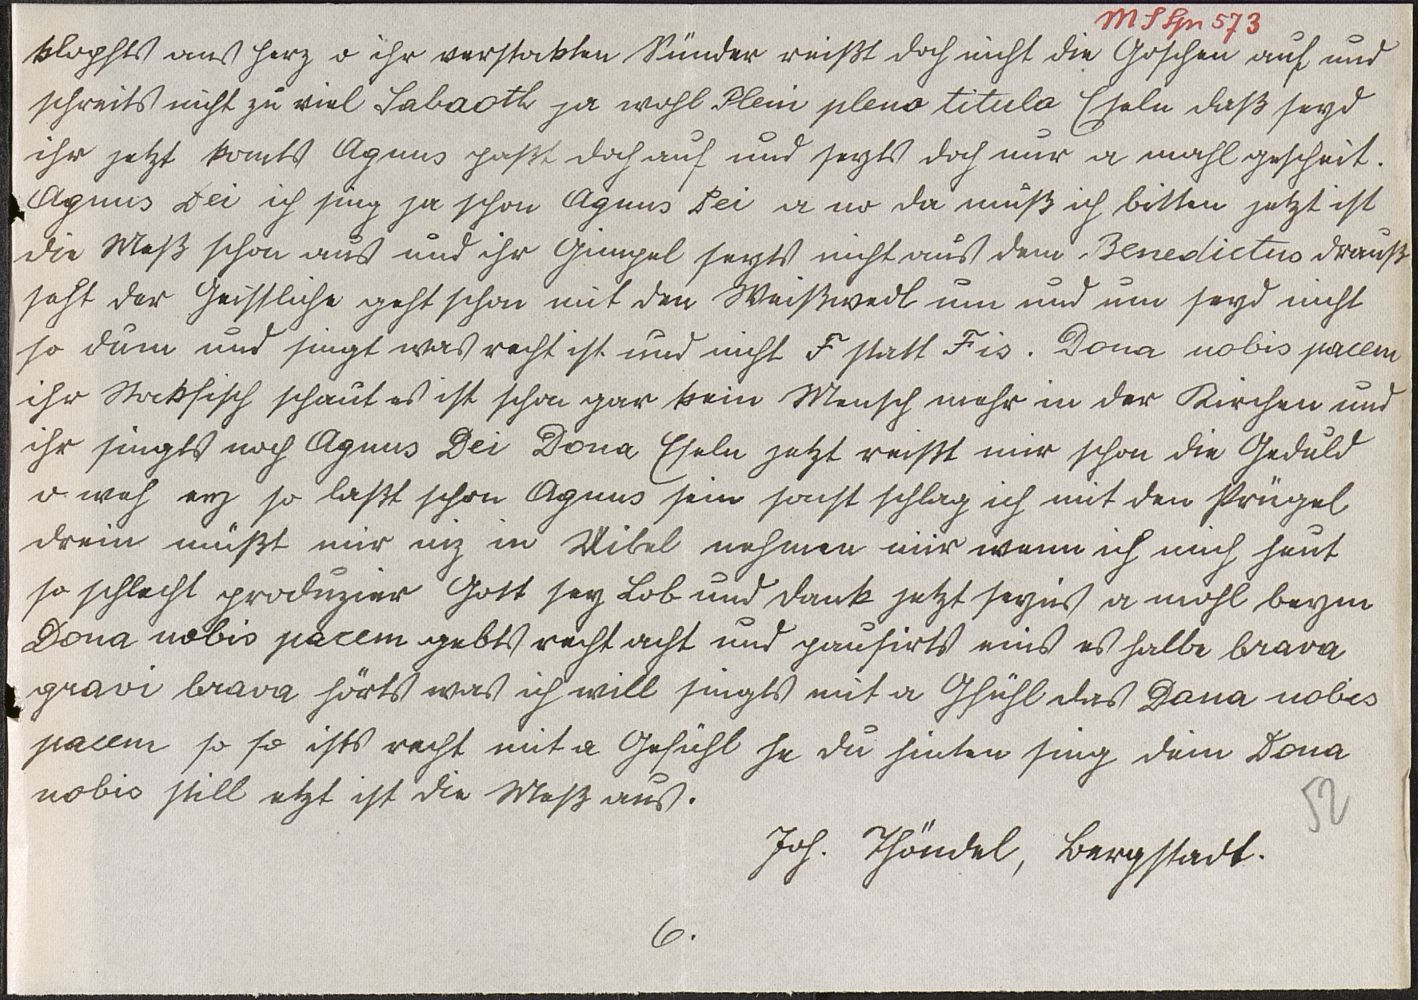 M S Spr 573
klopfts ans Herz o ihr verstokten Sünder reißt doch nicht die Goschen auf und
schreits nicht zu viel Sabaoth ja wohl Pleni pleno titulo Eseln daß seyd
ihr jetzt komts Agnus paßt doch auf und seyts doch nur a mahl gescheit.
Agnus Dei ich sing ja schon Agnus Dei a no da muß ich bitten jetzt ist
die Meß schon aus und ihr Gimpel seyts nicht aus dem Benedictus drauß
seht der Geistliche geht schon mit den Weißwedl um und um seyd nicht
so dum und singt was recht ist und nicht F statt Fis. Dona nobis pacem
ihr Stockfisch schaut es ist schon gar kein Mensch mehr in der Kirchen und
ihr singts noch Agnus Dei Dona Eseln jetzt reißt mir schon die Geduld
o weh so laßt schon Agnus sein sonst schlag ich mit den Prügel
drein müßt mir nix in Uibel nehmen mir wenn ich mich heut
so schlecht produzier Gott sey Lob und Dank jetzt seyns a mohl beym
Dona nobis pacem gebts recht acht und pausirts eins es halbe brava
gravi brava hörts was ich will singts mit a Gfühl das Dona nobis
pacem so so ists recht mit a Gefühl he du hinten sing dein Dona
nobis still etzt ist die Meß aus.
52
Joh. Thöndel, Bergstadt.
6.